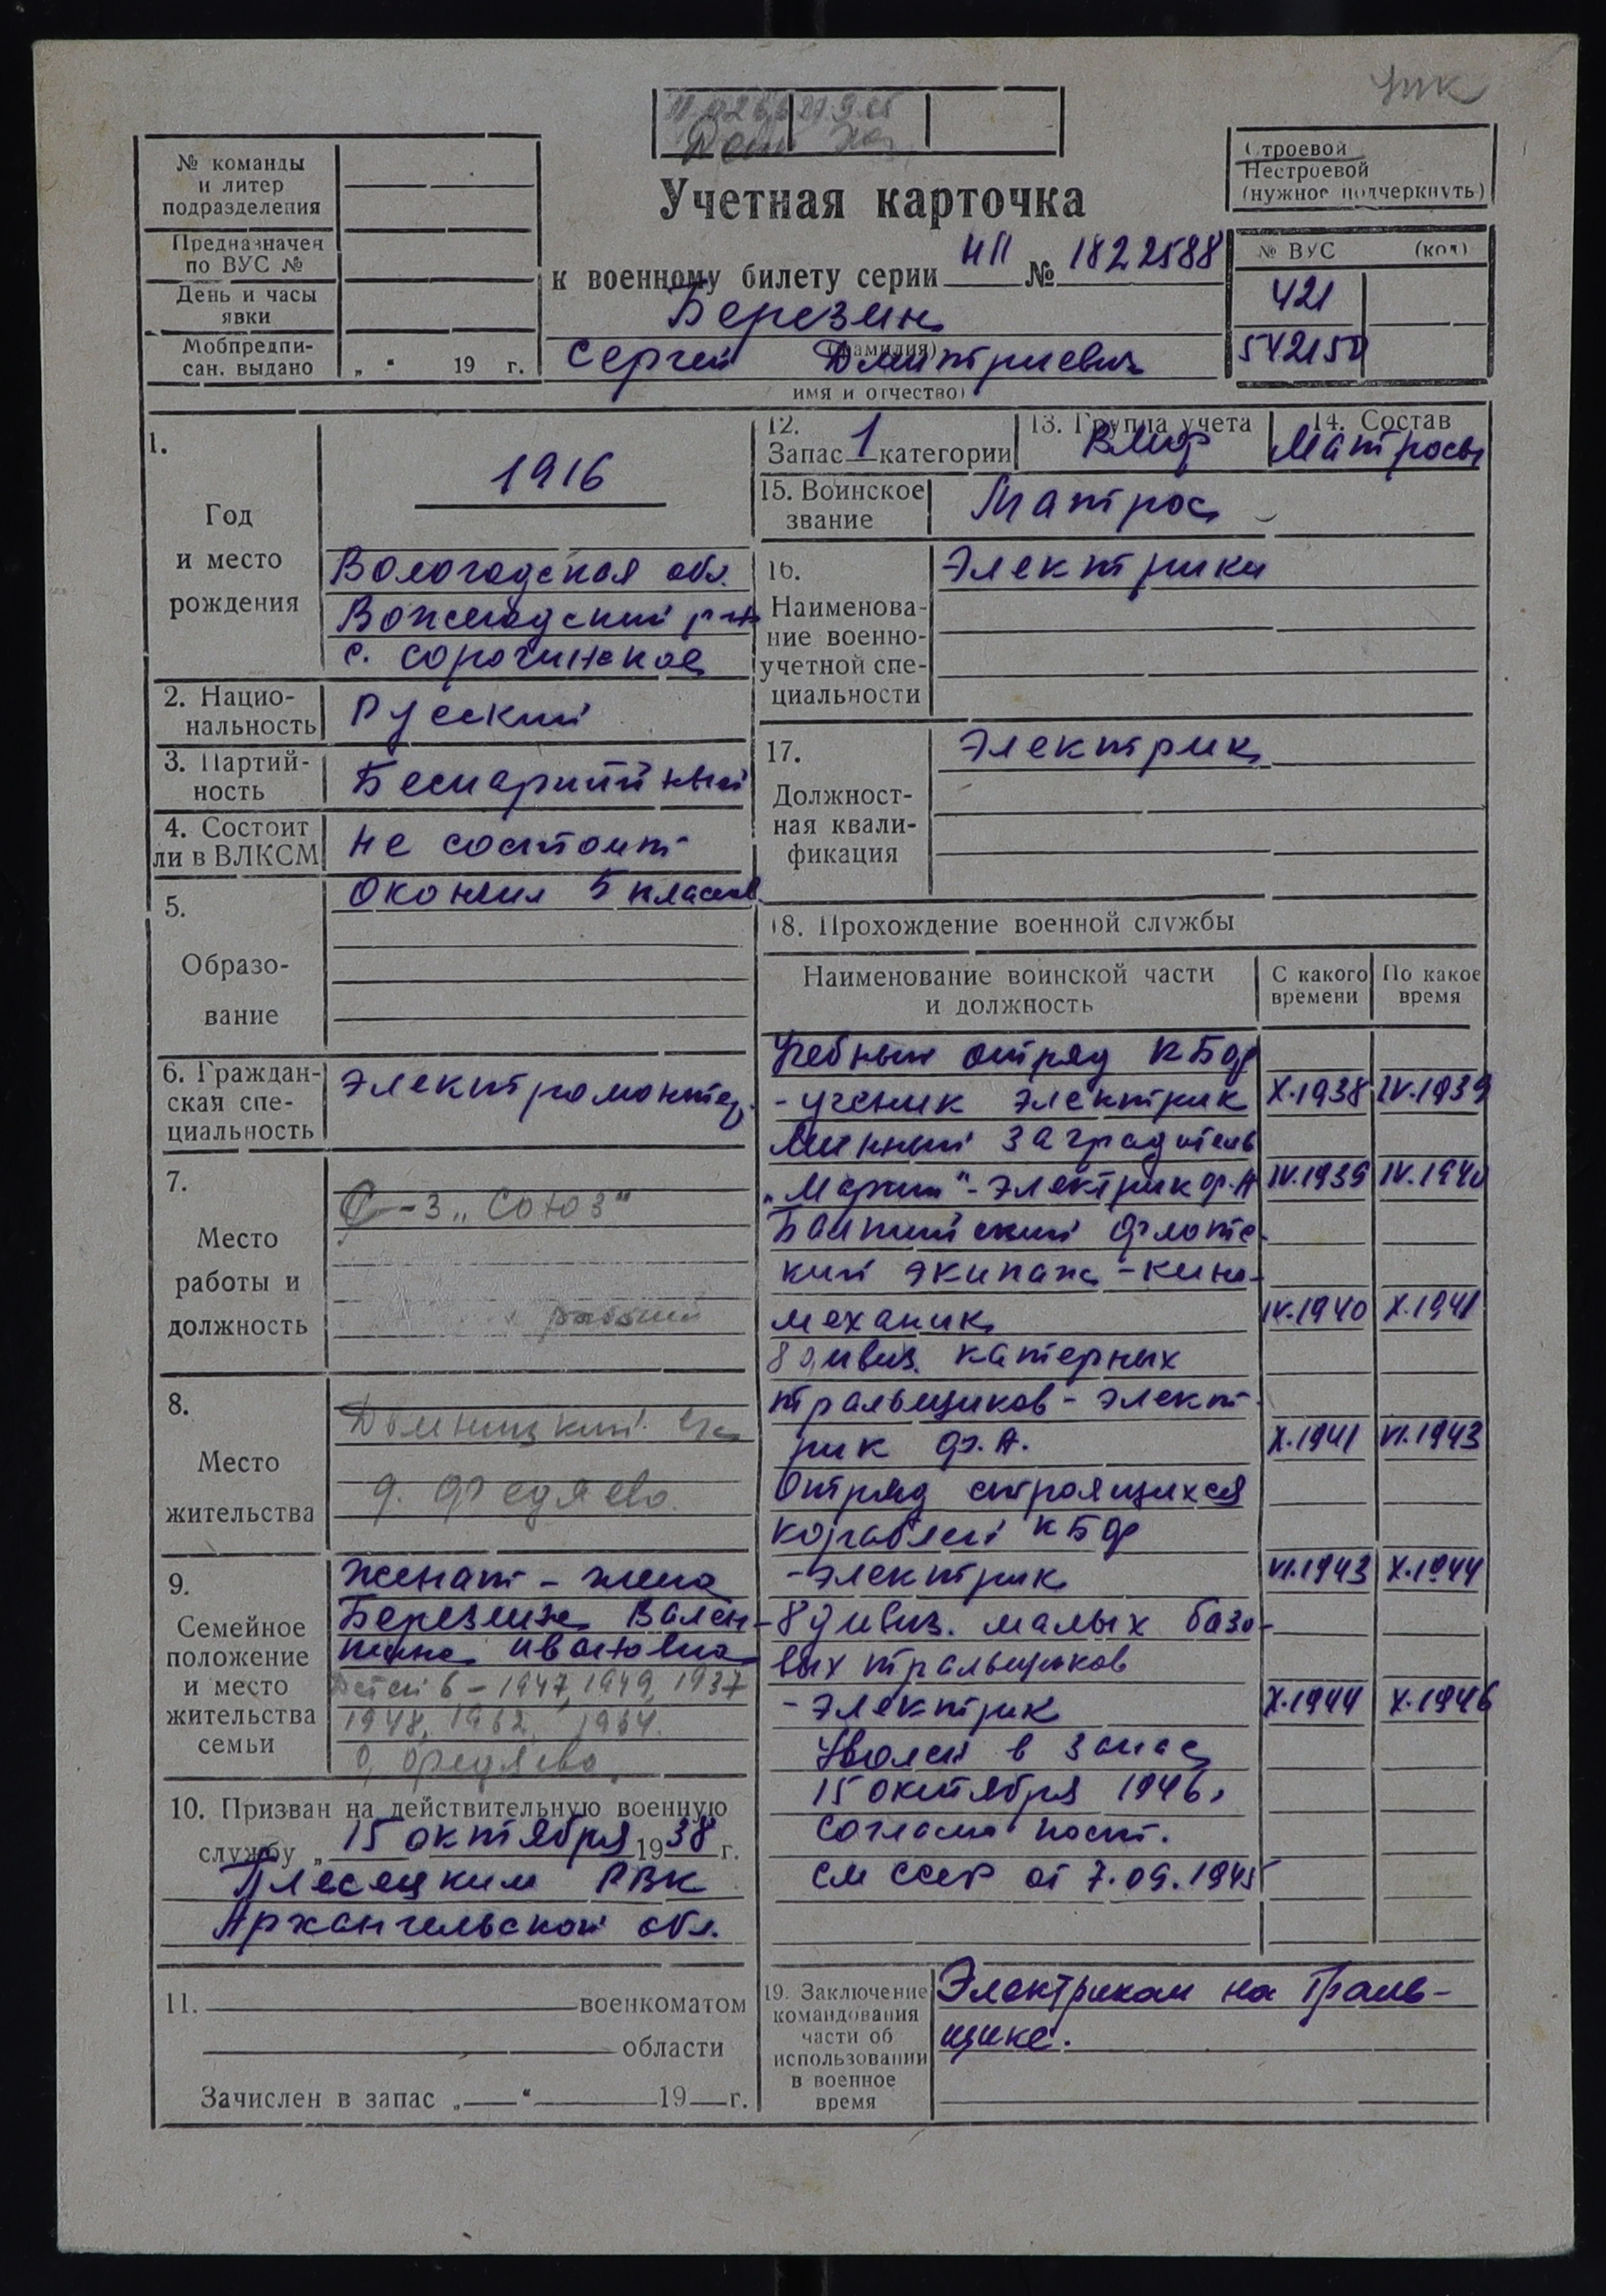 Учетная карточка
к военному билету серии НП № 1822588
Березин
(фамилия)
Сергей Дмитриевич
имя и отчество)
№ команды
и литер
подразделения
Предназначен
по ВУС №
День и часы
явки
Мобпредпи-
сан. выдано „ “ 19 г.
Строевой
Нестроевой
(нужное подчеркнуть)
№ ВУС (код)
421
542150
1.
Год
и место
рождения
1916
Вологодская обл.
Вожегодский р-н
с. Сорочинское
2. Нацио-
нальность
Русский
3. Партий-
ность
Беспартийный
4. Состоит
ли в ВЛКСМ
не состоит
5.
Образо-
вание
Окончил 5 классов
6. Граждан-
ская спе-
циальность
Электромонтер
7.
Место
работы и
должность
С-з „Союз“
рабочий
8.
Место
жительства
д. Федяево.
9.
Семейное
положение
и место
жительства
семьи
Женат - жена
Березина Вален-
тина Ивановна
Детей 6 - 1947, 1949, 1937
1948, 1952, 1954.
д. Федяево
10. Призван на действительную военную
службу „15 октября 1938 г.
Плесецким РВК
Архангельской обл.
11. военкоматом
области
Зачислен в запас „ “ 19 г.
12.
Запас 1 категории
13. Группа учета
ВМФ
14. Состав
Матросы
15. Воинское
звание
Матрос
16.
Наименова-
ние военно-
учетной спе-
циальности
Электрики
17.
Должност-
ная квали-
фикация
Электрик
18. Прохождение военной службы
Наименование воинской части
и должность
С какого
времени
По какое
время
Учебный отряд КБФ
- ученик электрик X.1938 IV.1939
Минный заградитель
„Марти“ - электрик ф.А IV.1939 IV.1940
Балтийский флотс-
кий экипаж - кино-
механик IV.1940 X.1941
8 дивиз. катерных
тральщиков - элект-
рик ф.А. X.1941 VI.1943
Отряд строящихся
кораблей КБФ
- электрик VI.1943 X.1944
8 дивиз. малых базо-
вых тральщиков
- электрик X.1944 X.1946
Уволен в запас
15 октября 1946г
согласно пост.
СМ СССР от 7.09.1945
19. Заключение
командования
части об
использовании
в военное
время
Электриком на траль-
щике.